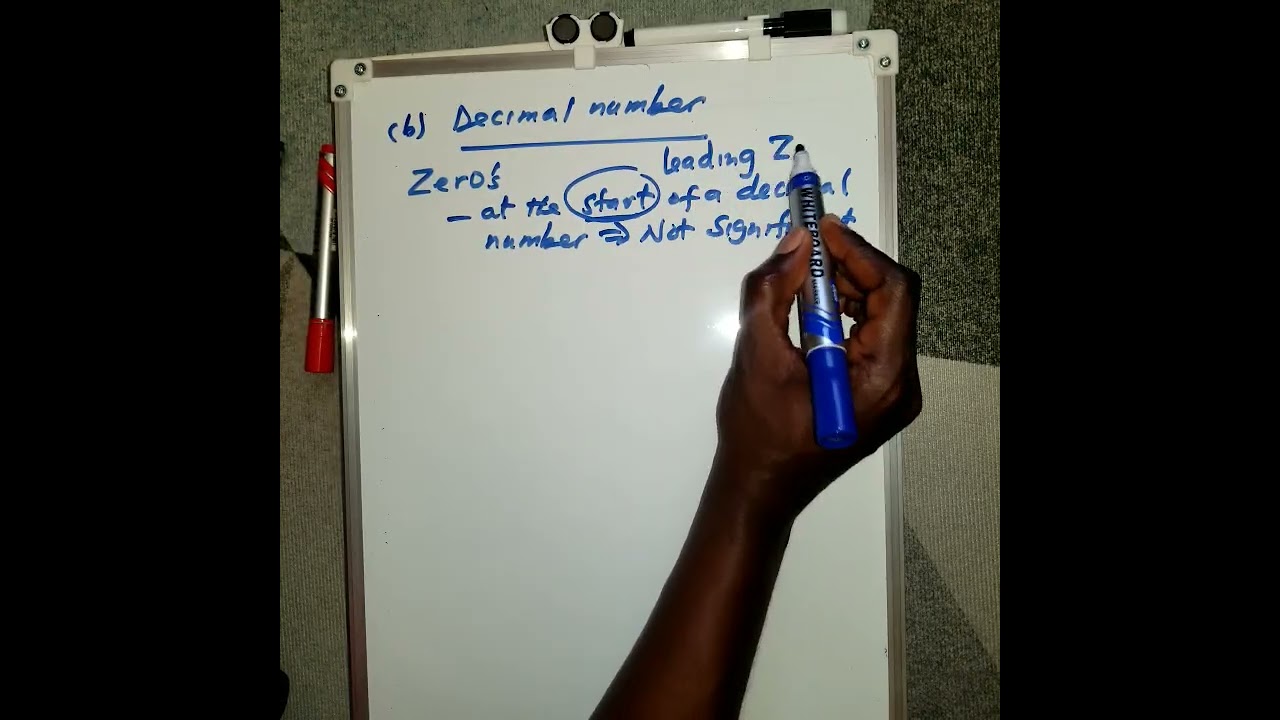 (b) Decimal number
leading Z
Zero's
- at the start of a decimal
number ⇒ Not Signif t
WHITEBOARD